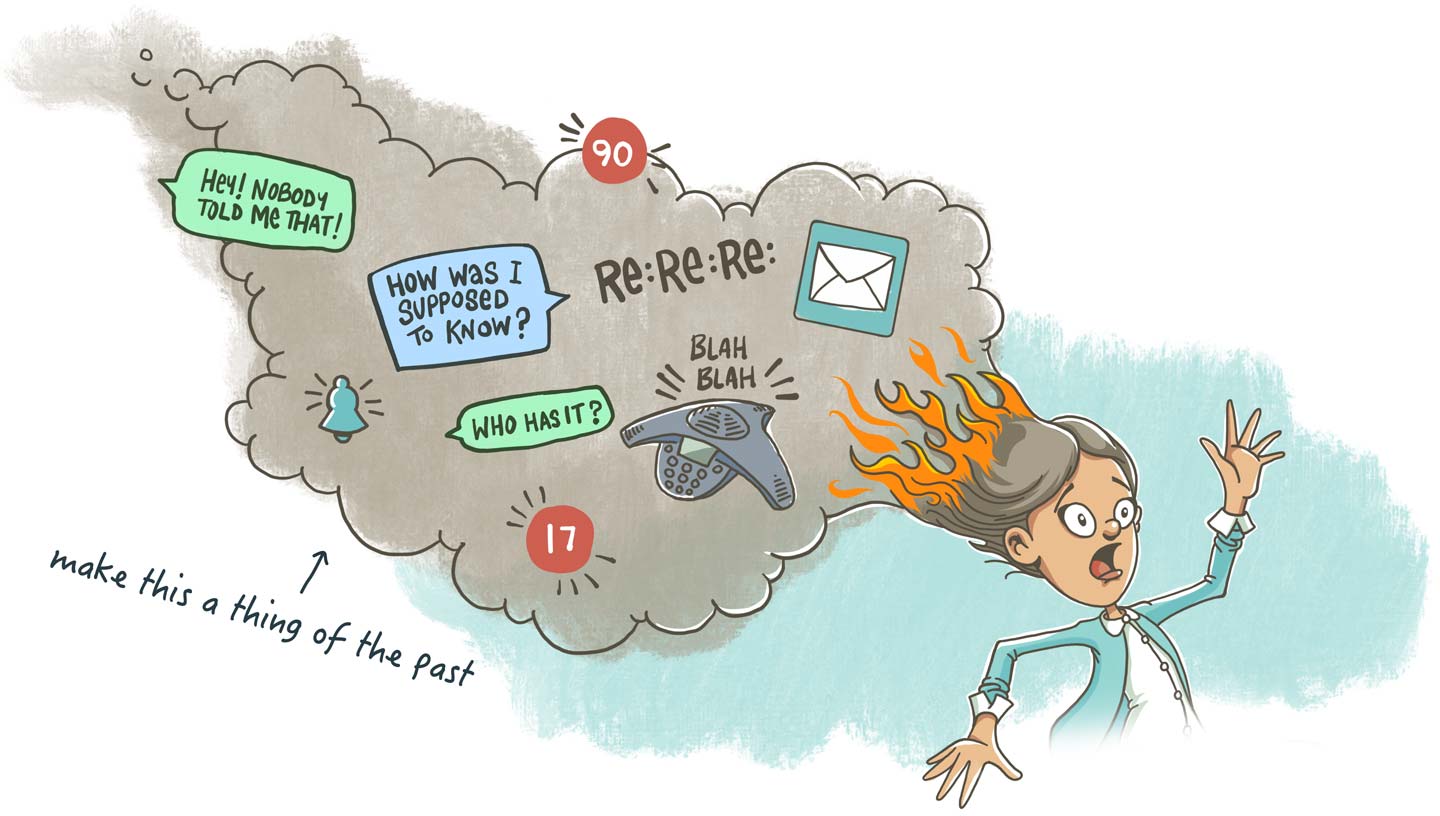 90
Hey! NOBODY
TOLD ME THAT!
HOW WAS I
SUPPOSED
TO KNOW?
Re:Re:Re:
BLAH
BLAH
WHO HAS IT?
17
make this a thing of the past